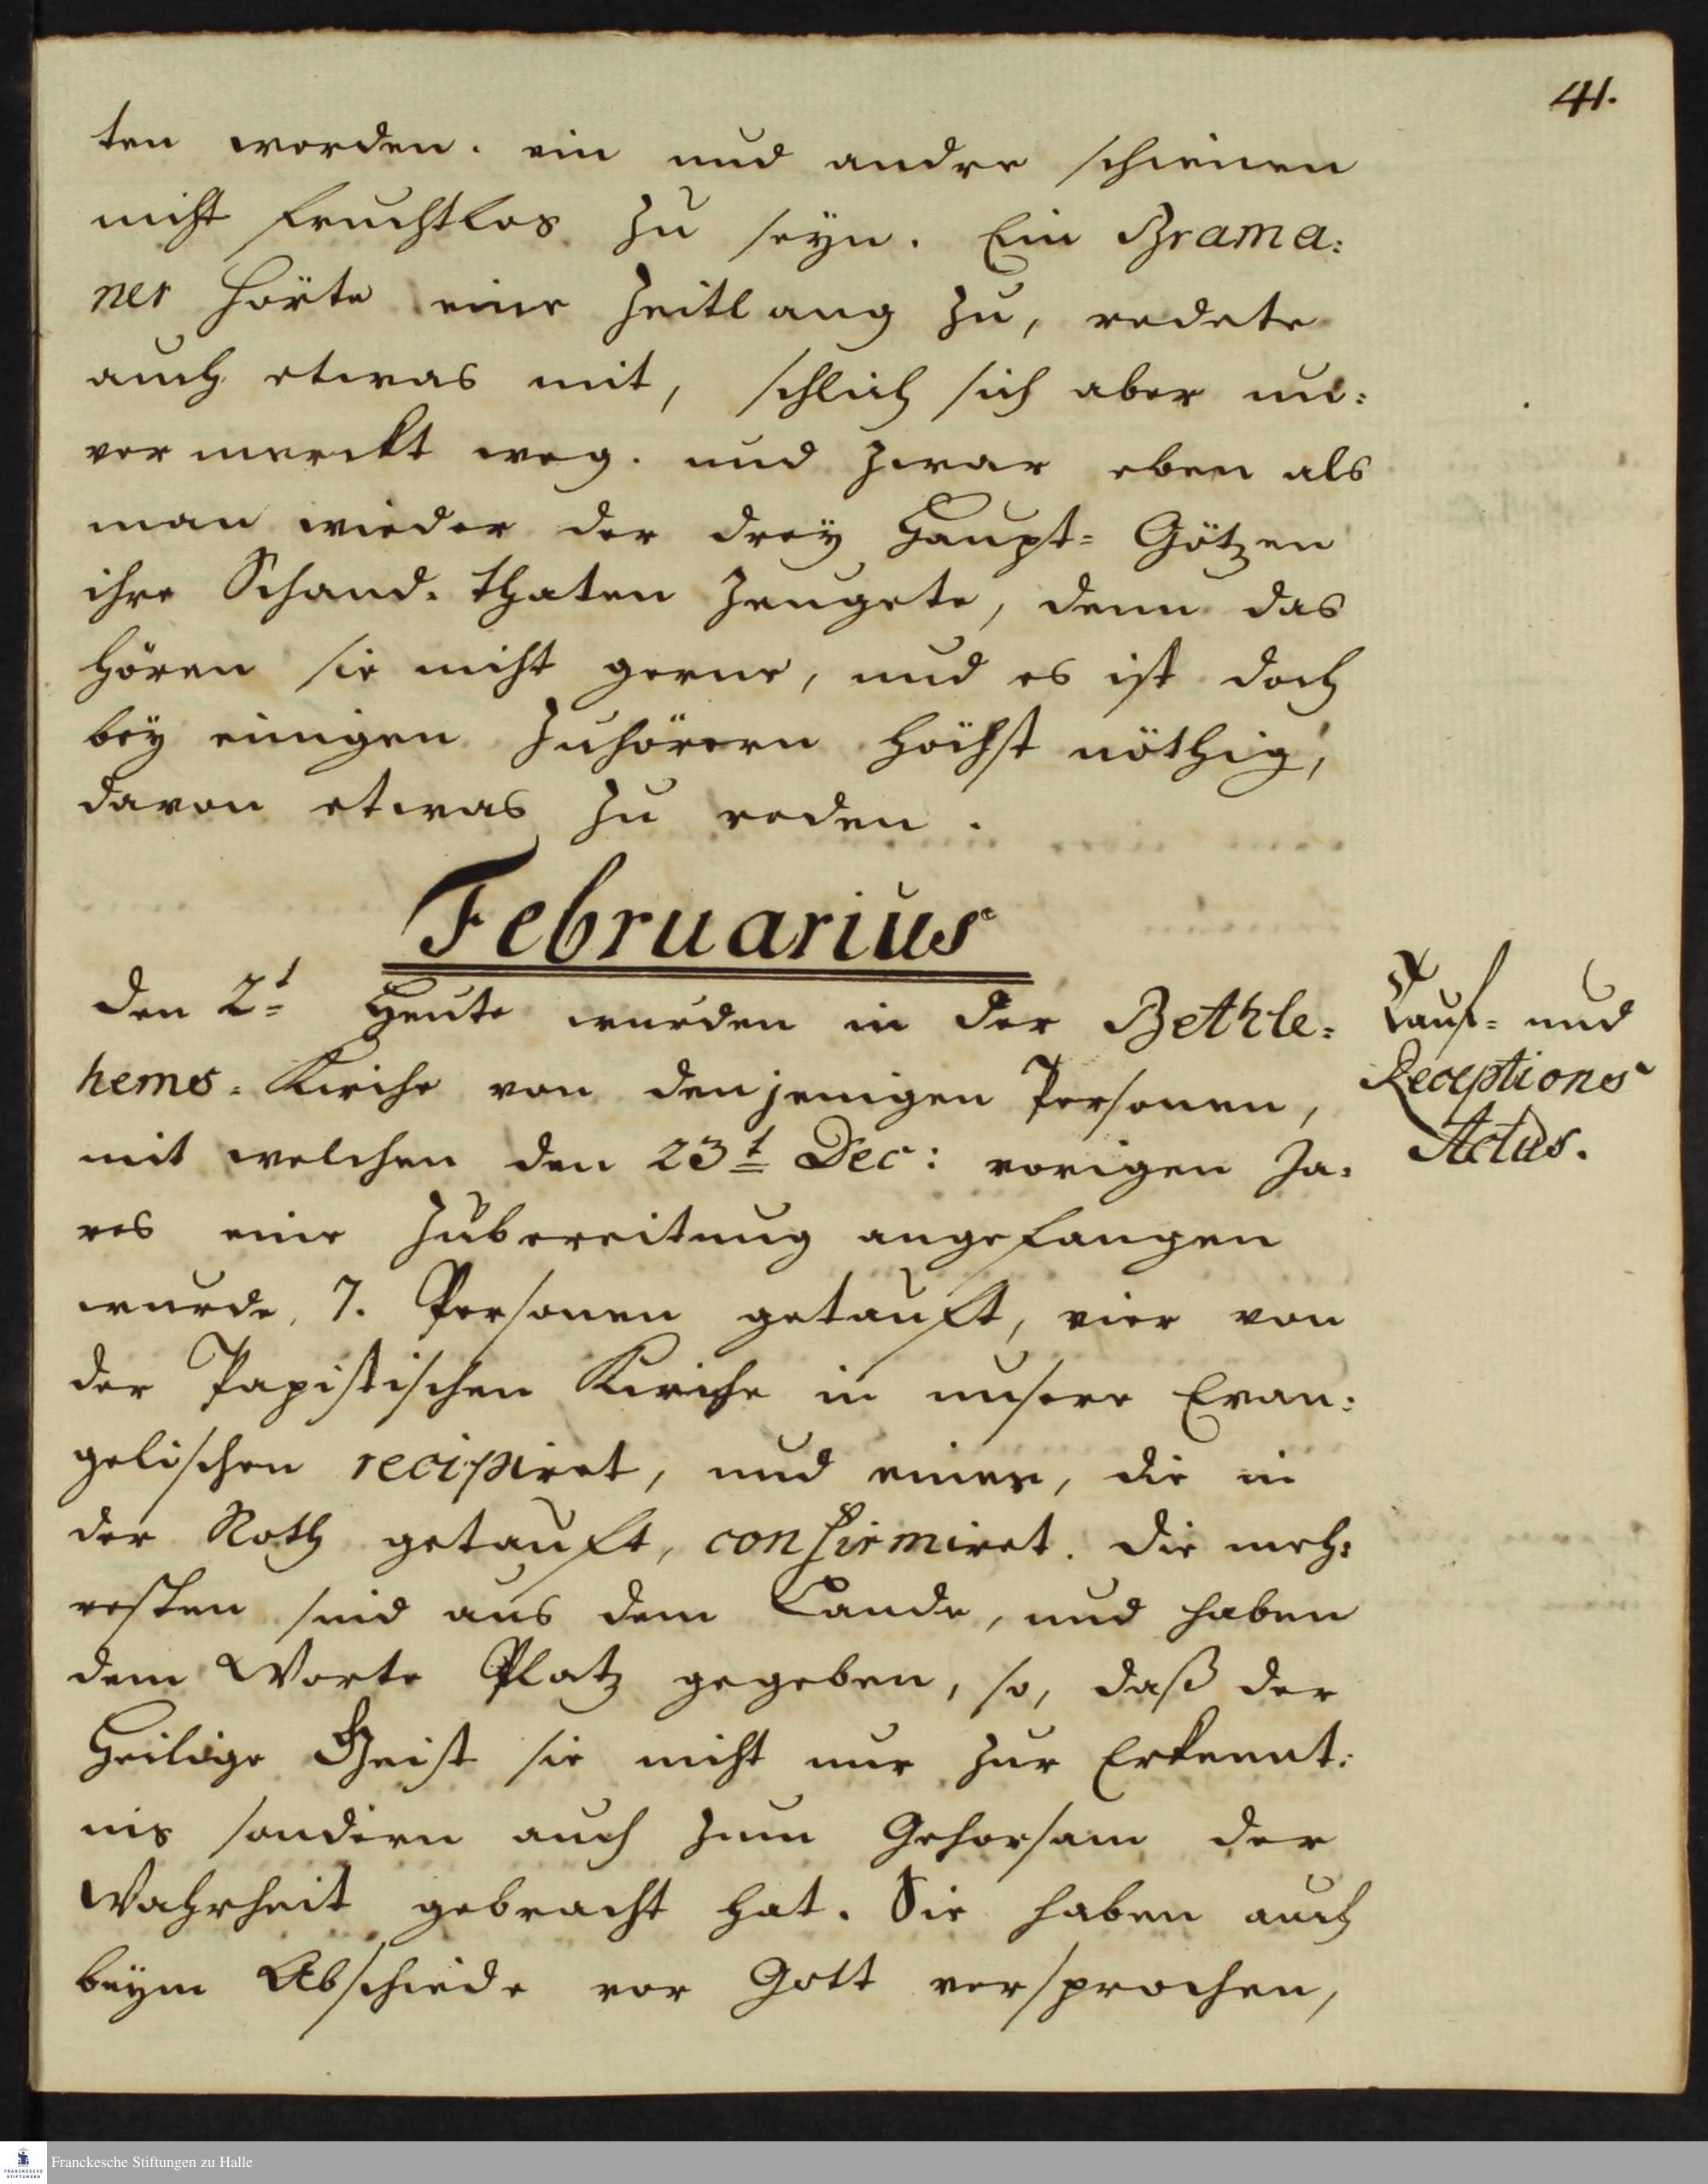 41.
ten worden. ein und andre schienen
nicht fruchtlos zu seyn. Ein Brama:
ner hörte eine Zeitlang zu, redete
auch etwas mit, schlich sich aber un:
vermerckt weg. und zwar eben als
man wieder der drey Haupt= Götzen
ihre Schand. thaten zeugete, denn das
hören sie nicht gerne, und es ist doch
bey einigen Zuhörern höchst nöthig,
davon etwas zu reden.
Februarius
den 2t Heute wurden in der Bethle=
hems. Kirche von denjenigen Personen,
mit welchen den 23t Dec: vorigen Ja:
res eine Zubereitung angefangen
wurde, 7. Personen getauft, vier von
der Papistischen Kirche in unsere Evan:
gelischen recipiret, und einer, die in
der Noth getauft, confirmiret. die meh:
resten sind aus dem Lande, und haben
dem Worte Platz gegeben, so, daß der
Heilige Geist sie nicht nur zur Erkennt:
nis sondern auch zum Gehorsam der
Wahrheit gebracht hat. Sie haben auch
beym Abschiede vor Gott versprochen,
Tauf= und
Receptions
Actus.
Franckesche Stiftungen zu Halle
FRANCKESCHE
STIFTUNGEN